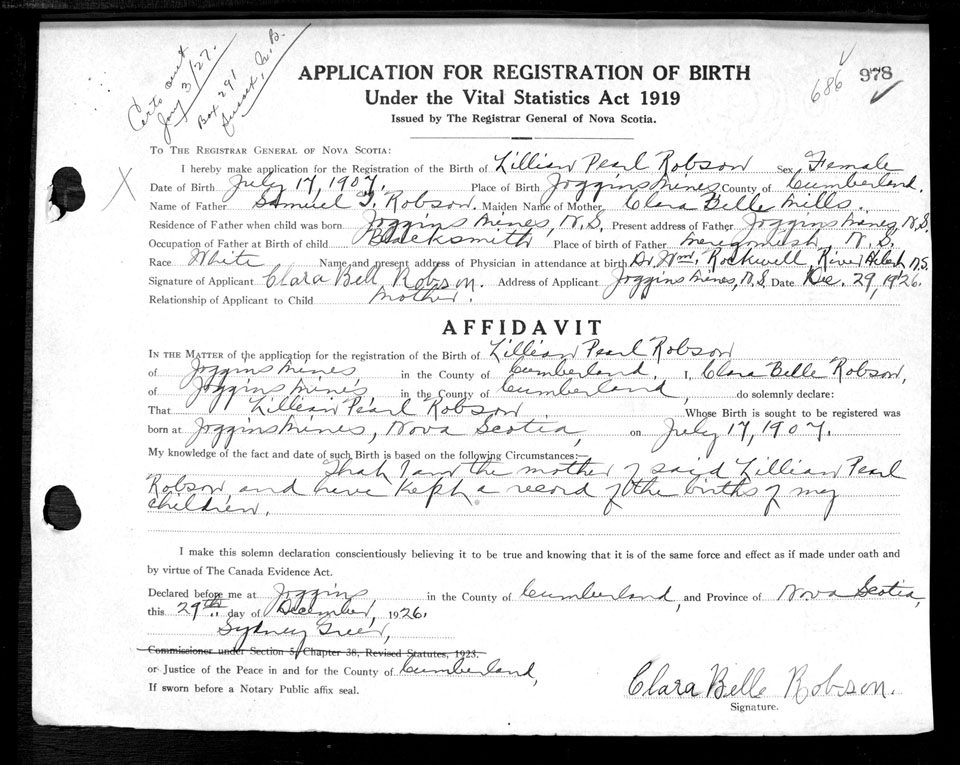 Certs sent
Jany 3/27.
Box 291
Sussex, N.B.
686
978
APPLICATION FOR REGISTRATION OF BIRTH
Under the Vital Statistics Act 1919
Issued by The Registrar General of Nova Scotia.
TO THE REGISTRAR GENERAL OF NOVA SCOTIA:
I hereby make application for the Registration of the Birth of Lillian Pearl Robson Sex Female
Date of Birth July 17, 1907. Place of Birth Joggins Mines County of Cumberland.
Name of Father Samuel T. Robson. Maiden Name of Mother Clara Belle Mills.
Residence of Father when child was born Joggins Mines, N.S. Present address of Father Joggins Mines, N.S.
Occupation of Father at Birth of child Blacksmith Place of birth of Father Merigomish, N.S.
Race White Name and present address of Physician in attendance at birth Dr. Wm. Rockwell, River Hebert N.S.
Signature of Applicant Clara Bell Robson. Address of Applicant Joggins Mines, N.S. Date Dec. 29, 1926.
Relationship of Applicant to Child Mother.
AFFIDAVIT
IN THE MATTER of the application for the registration of the Birth of Lillian Pearl Robson
of Joggins Mines in the County of Cumberland. I, Clara Belle Robson,
of Joggins Mines in the County of Cumberland, do solemnly declare:
That Lillian Pearl Robson Whose Birth is sought to be registered was
born at Joggins Mines, Nova Scotia, on July 17, 1907.
My knowledge of the fact and date of such Birth is based on the following Circumstances:—
That I am the mother of said Lillian Pearl
Robson and have kept a record of the births of my
children.
I make this solemn declaration conscientiously believing it to be true and knowing that it is of the same force and effect as if made under oath and
by virtue of The Canada Evidence Act.
Declared before me at Joggins in the County of Cumberland, and Province of Nova Scotia,
this 29th day of December, 1926.
Sydney Greer,
Commissioner under Section 5, Chapter 38, Revised Statutes, 1923.
or Justice of the Peace in and for the County of Cumberland,
If sworn before a Notary Public affix seal.
Clara Belle Robson.
Signature.